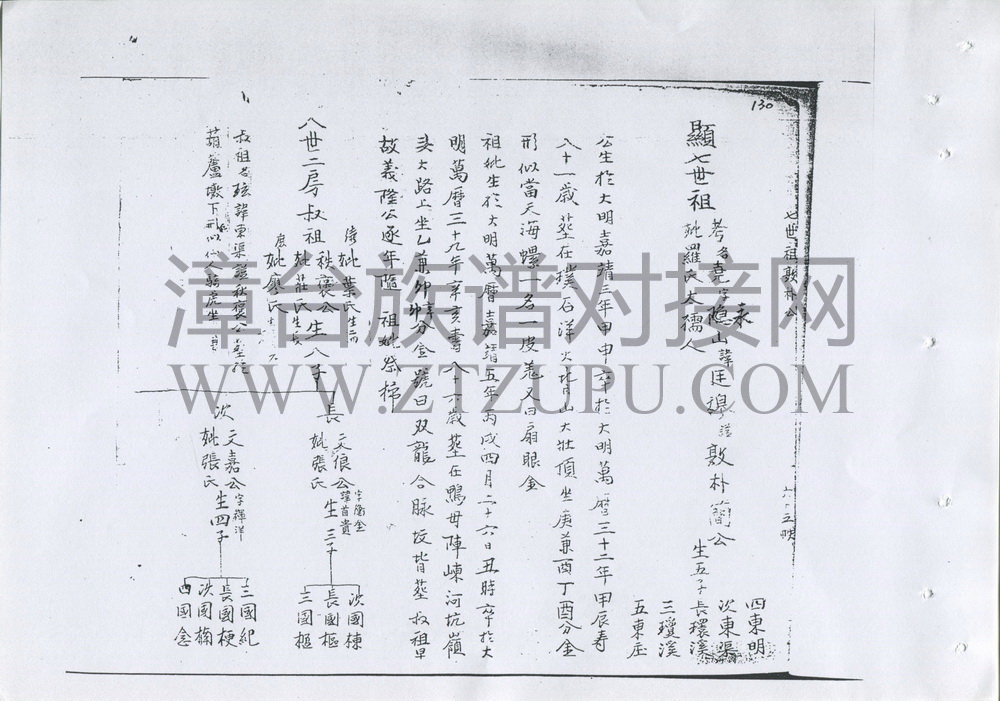 130
七世祖敦朴公
顯七世祖
考名熹字隱山諱廷邉諡敦朴簡公
永
妣羅氏太孺人
生五子
長環溪
次東渠
三瓊溪
四東明
五東庄
公生於大明嘉靖三年甲申卒於大明萬曆三十二年甲辰寿
八十一歲塟在璞石洋火背山大壯頂坐庚兼酉丁酉分金
形似當天海螺一名一皮卷又曰扇眼金
祖妣生於大明萬曆嘉靖五年丙戌四月二十六日丑時卒於大
明萬曆三十九年辛亥壽八十六歲塟在鴨母陣崠河坑嶺
夹大路上坐乙兼卯辛卯分金號曰双龍合脉坟背塟叔祖早
故義隆公逐年隨祖妣祭掃
八世二房叔祖
妣葉氏
秩褒公生八子
妣莊氏
妣廖氏
叔祖
諱東渠諡秩褒公塟在
葫蘆墩下形似仙人騎虎坐
長文俍公
字衡金
諱首貴
妣張氏
生三子
長國樞
次國棟
三國樞
次文嘉公
字禪洋
妣張氏
生四子
長國梗
次國楠
三國紀
四國念
漳台族谱对接网
WWW.ZTZUPU.COM